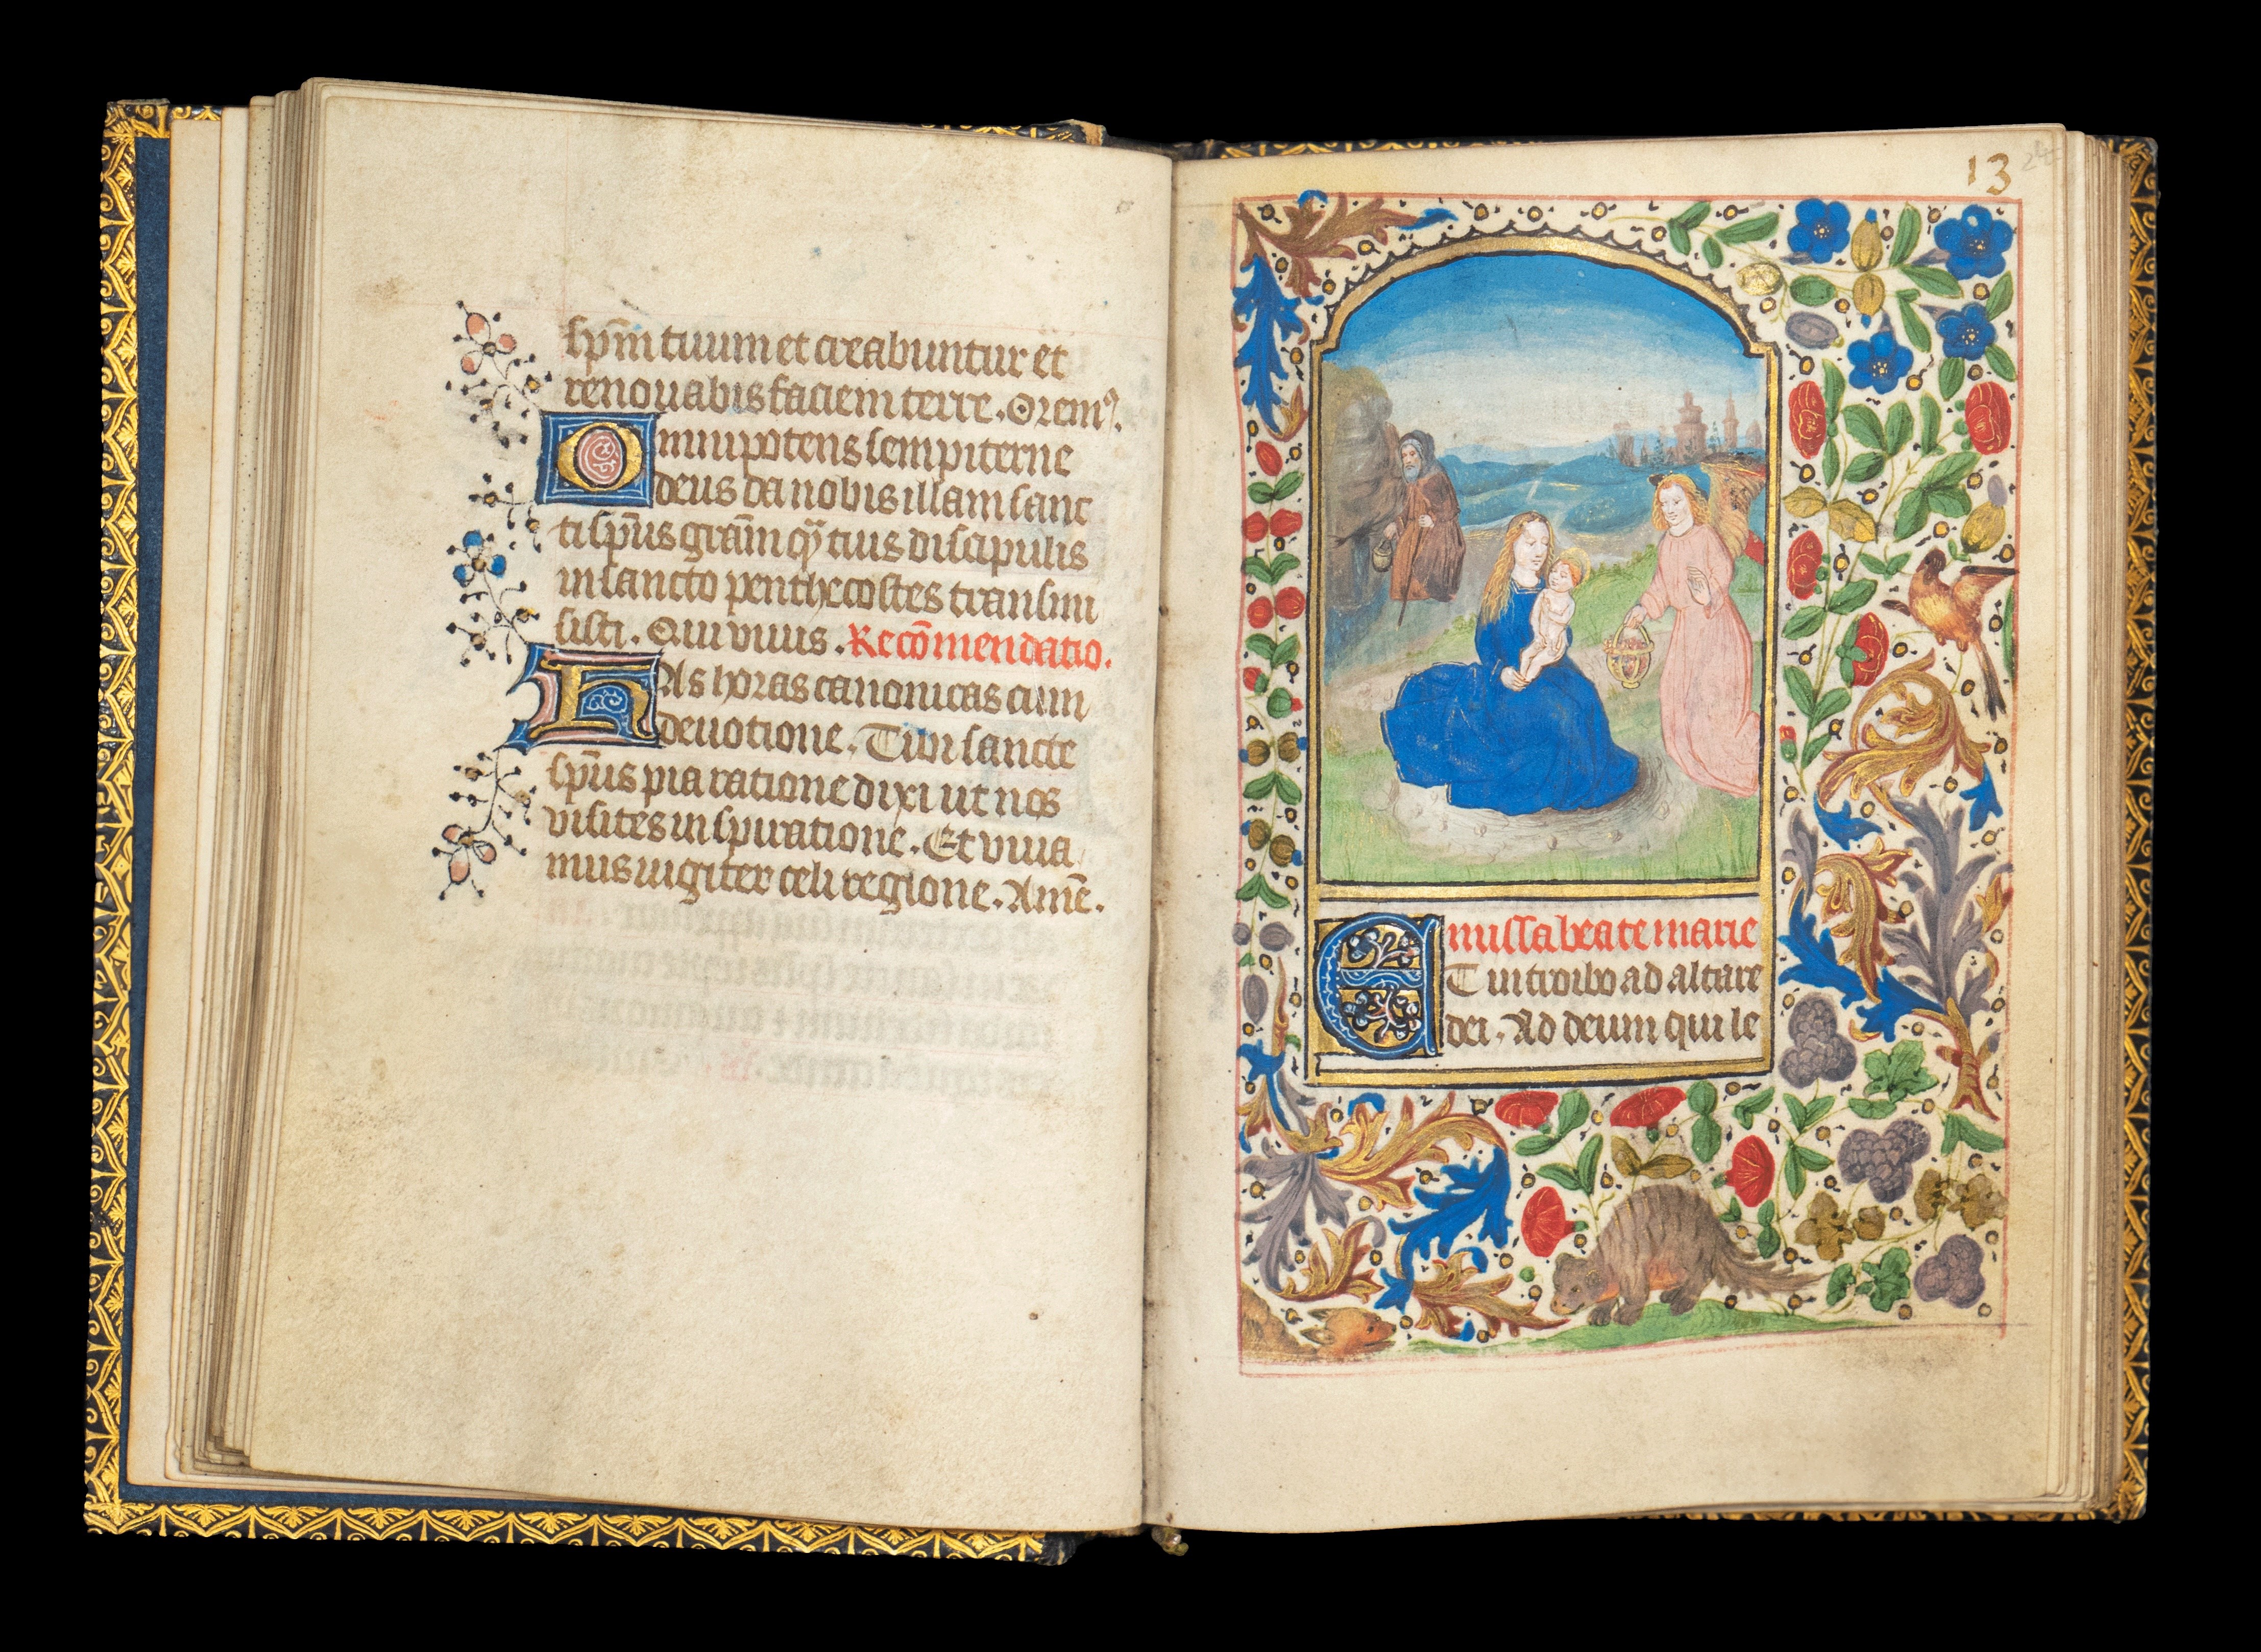 sp̄m tuum et creabuntur et
renouabis faciem terre. Orem⁹.
Omnipotens sempiterne
deus da nobis illam sanc
ti sp̄us grām q̄ tuis discipulis
in sancto penthecostes transmi
sisti. Qui viuis. Recōmendatio.
Has horas canonicas cum
deuotione. Tibi sancte
sp̄us pia ratione dixi ut nos
visites inspiratione. Et viua
mus iugiter celi regione. Amē.
13
24
missa beate marie
Et introibo ad altare
dei. Ad deum qui le